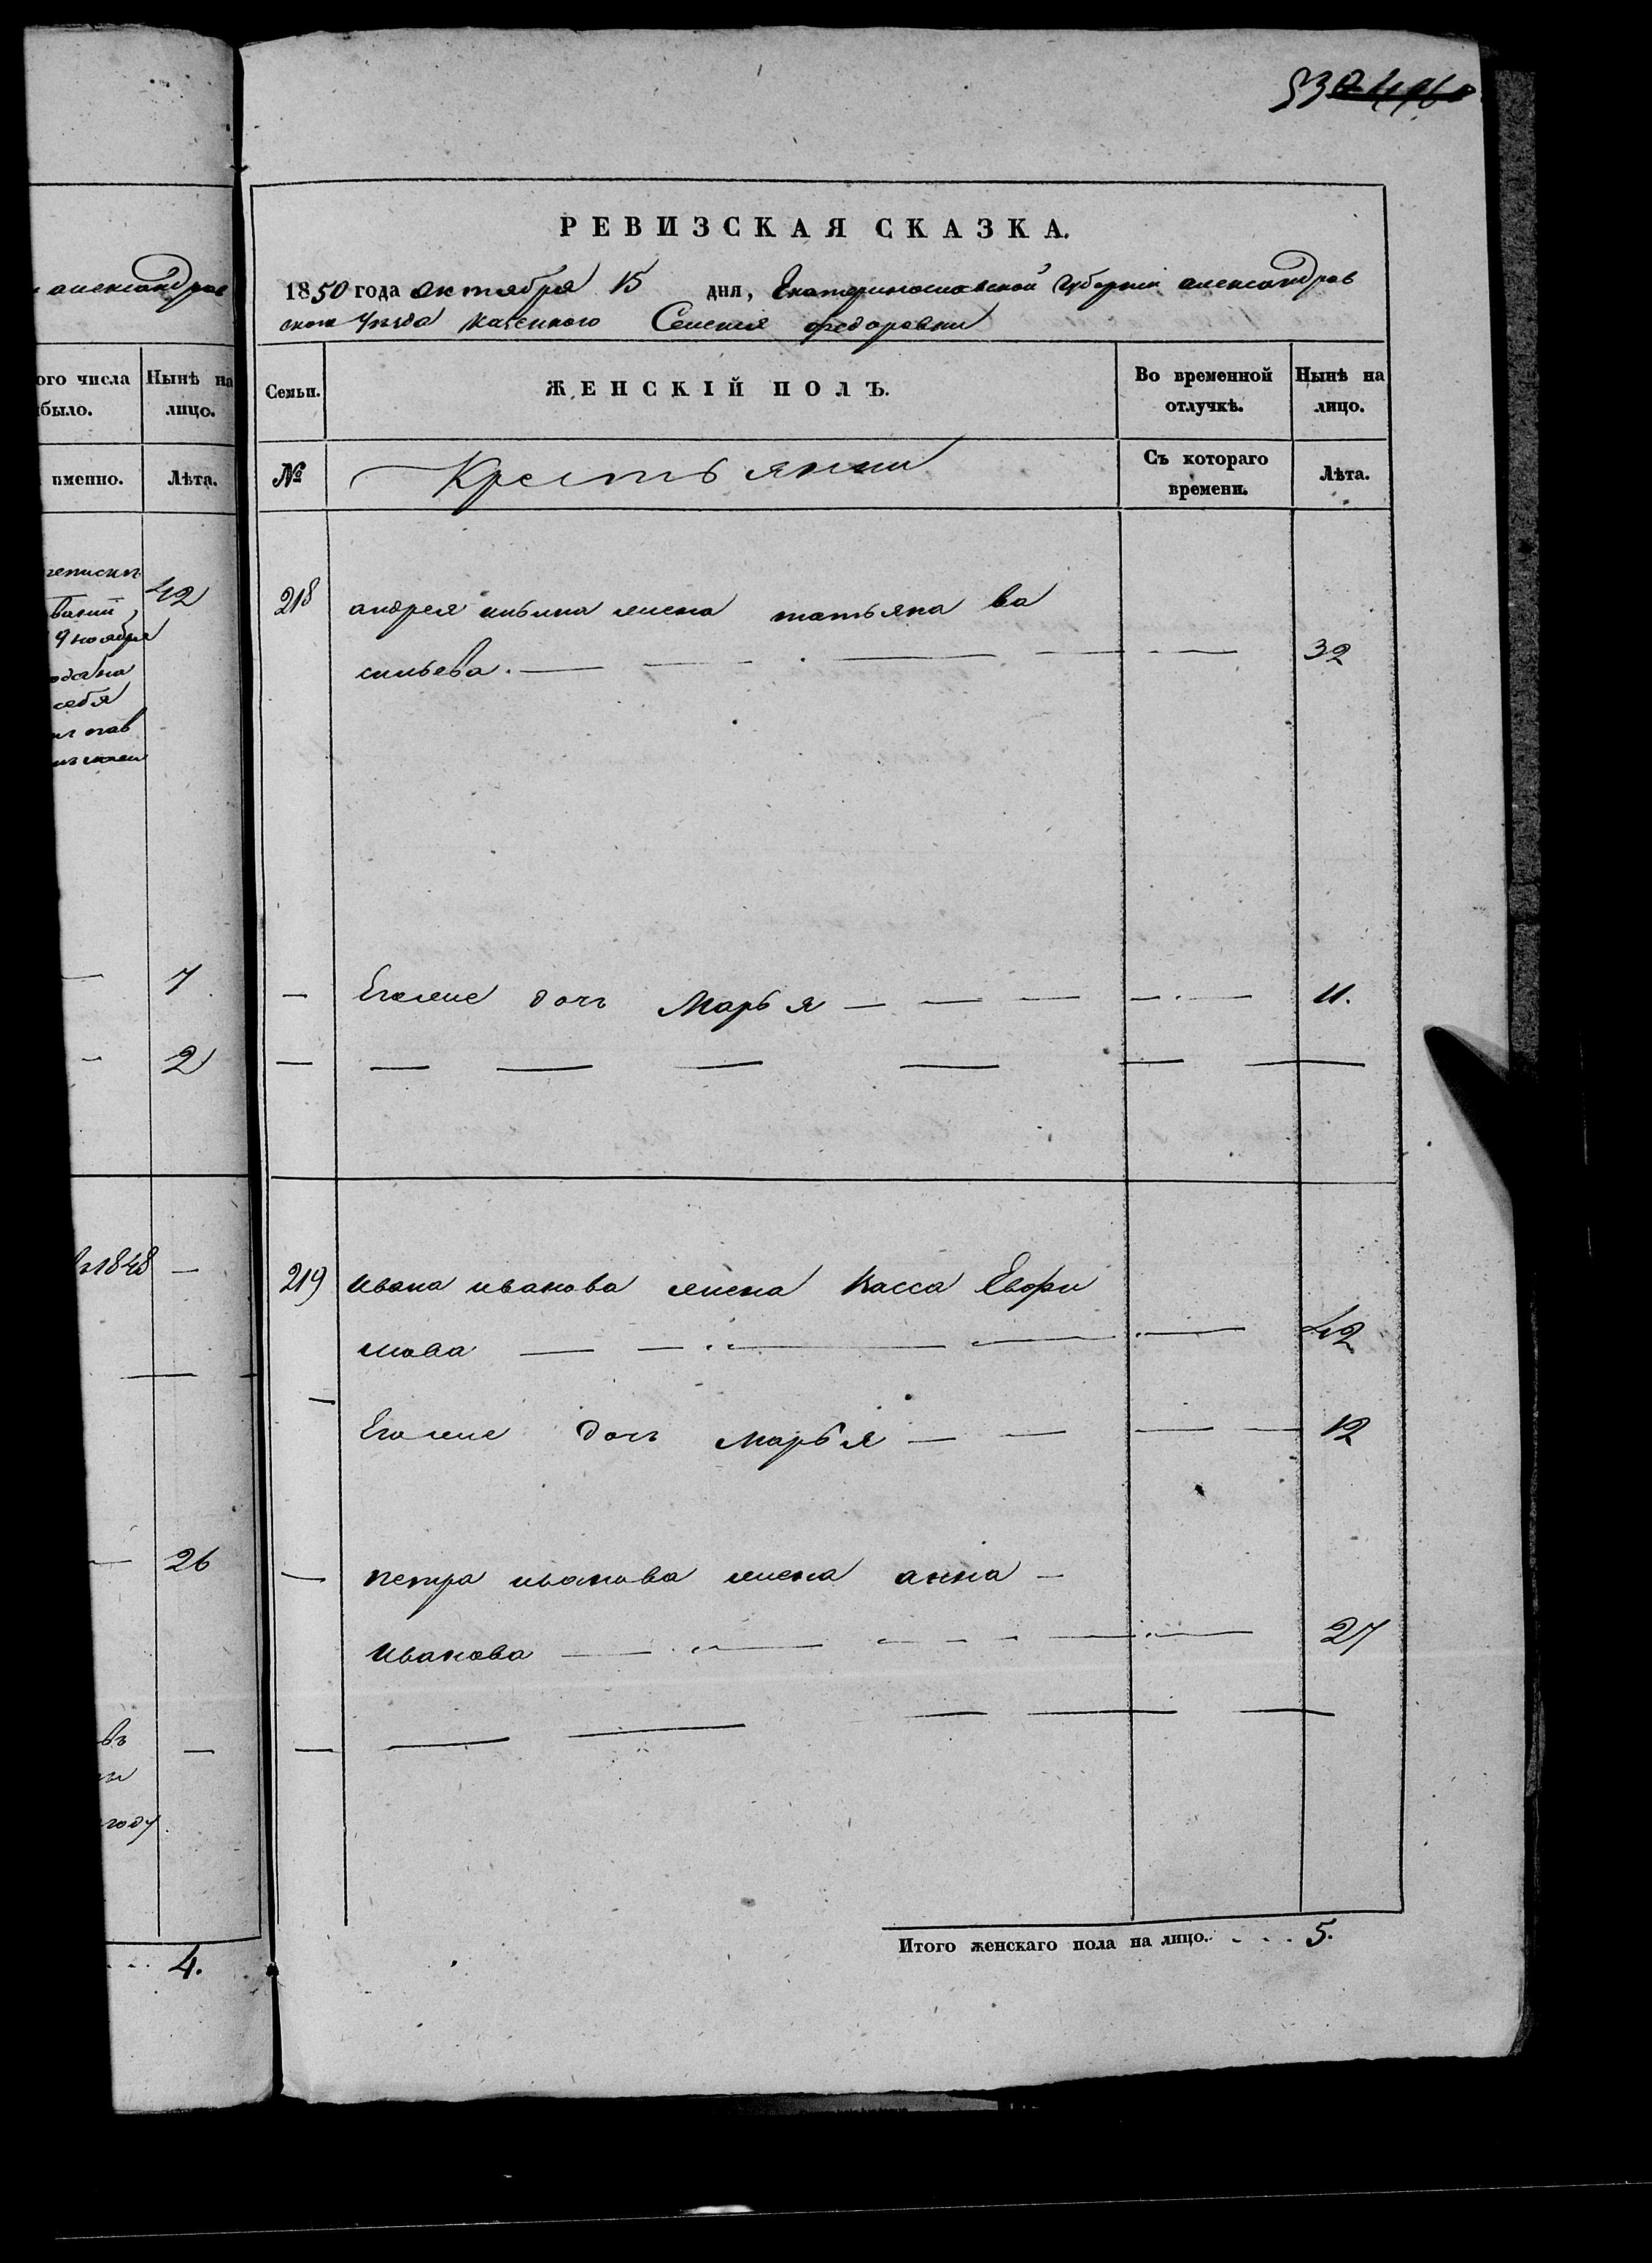 александров
ого числа
было.
Нынѣ на
лицо.
именно.
Лѣта.
42
9 ноября
себя
7
2
1848
26
въ
году
4.
530
РЕВИЗСКАЯ СКАЗКА.
1850 года октября 15 дня, Екатеринославской губерніи александров
скаго уезда казеннаго Селенія федоровки
Семьи.
ЖЕНСКІЙ ПОЛЪ.
Во временной
отлучкѣ.
Нынѣ на
лицо.
№
Крестьянки
Съ котораго
времени.
Лѣта.
218 андрея ильина жена татьяна ва
сильева. 32
Егоже дочь Марья 11.
219 ивана иванова жена Васса Евфи
мова 42
Егоже дочь марья 12
петра иванова жена анна
иванова 27
Итого женскаго пола на лицо. . . . 5.